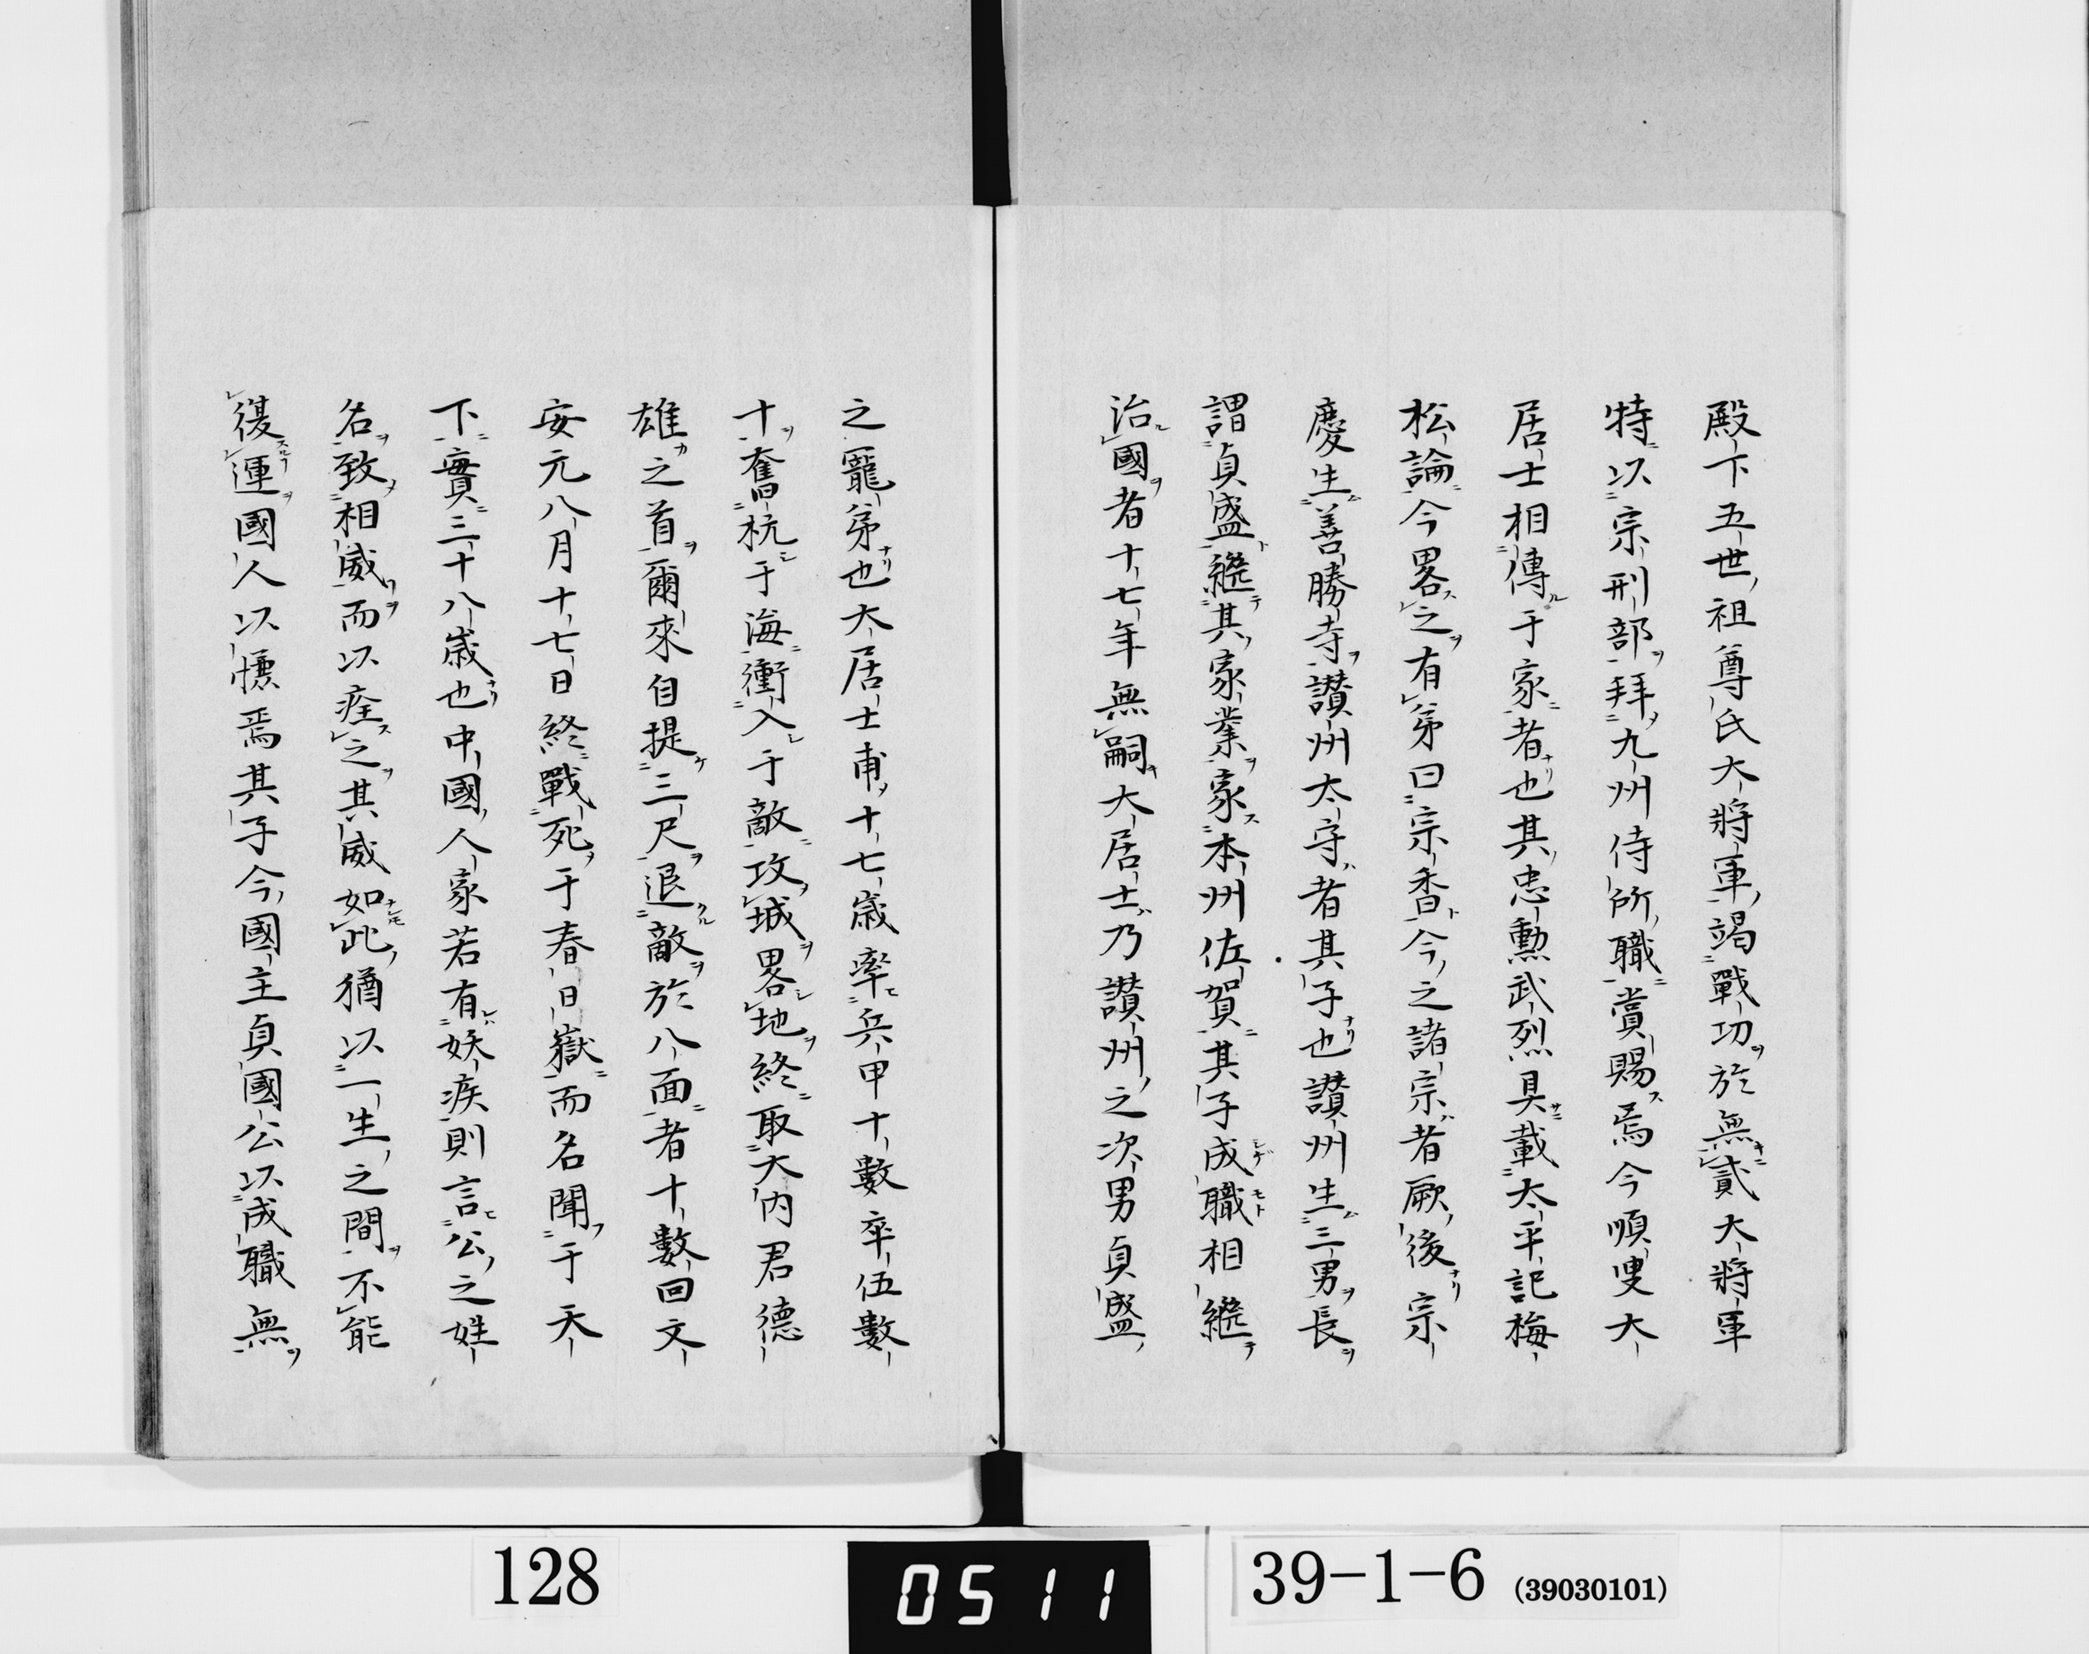 殿下五世祖尊氏大將軍竭戰功於無貳大將軍
特以宗刑部拜九州侍所職賞賜焉今順叟大
居士相傳于家者也其忠勲武烈具載太平記梅
松論今畧之有弟曰宗香今之諸宗者厥後宗
慶生善勝寺讃州太守者其子也讃州生三男長
謂貞盛繼其家業家本州佐賀其子成職相繼
治國者十七年無嗣大居士乃讃州之次男貞盛
之寵弟也大居士甫十七歳率兵甲十數卒伍數
十奮杭于海衝入于敵攻城畧地終取大内君德
雄之首爾來自提三尺退敵於八面者十數回文
安元八月十七日終戰死于春日嶽而名聞于天
下實三十八歳也中國人家若有妖疾則言公之姓
名致相威而以痊之其威如此猶以一生之間不能
復運國人以慺焉其子今國主貞國公以成職無
128
0511
39-1-6 (39030101)